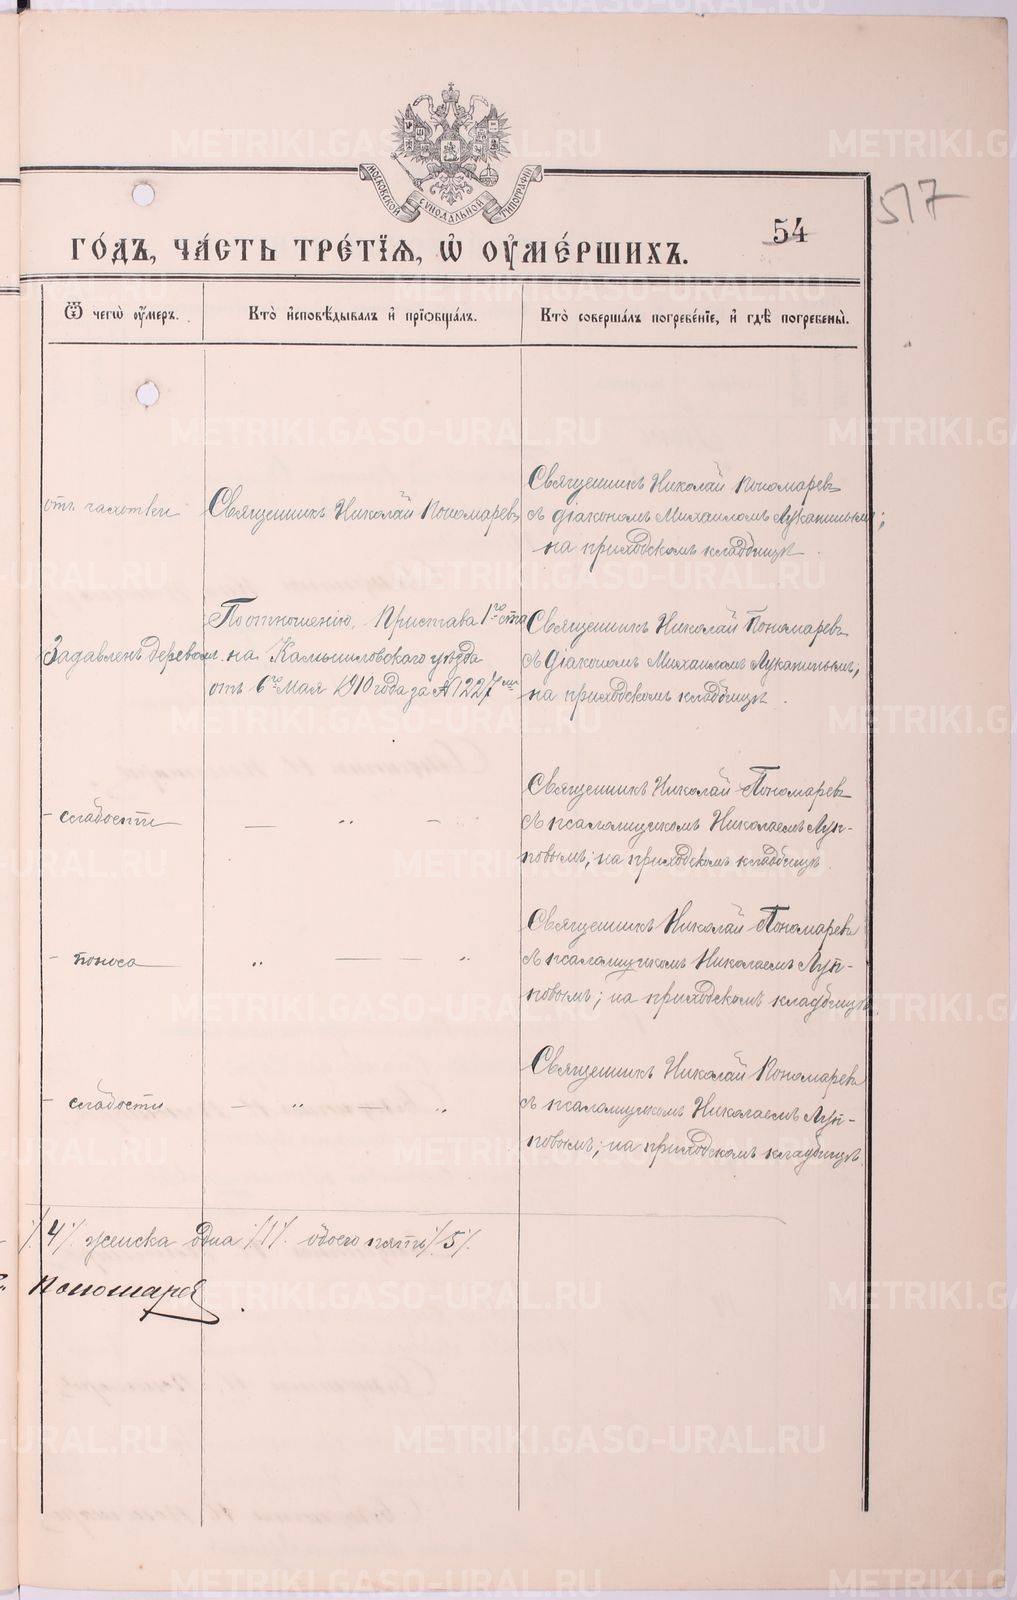 МОСКОВСКОЙ СУНОДАЛЬНОЙ ТИПОГРАФІИ
517
54
ГО́ДЪ, ЧА́СТЬ ТРЕ́ТІѦ, Ѡ҆ ОУ҆МЕ́РШИХЪ.
Ѿ чегѡ̀ оу҆́меръ.
Кто̀ и҆сповѣ́дывалъ и҆ прїѡбща́лъ.
Кто̀ соверша́лъ погребе́нїе, и҆ гдѣ̀ погребены̀.
отъ чахотки
Священникъ Николай Пономаревъ
Священникъ Николай Пономаревъ
съ діакономъ Михаиломъ Луканинымъ;
на приходскомъ кладбищѣ.
Задавленъ деревомъ.
По отношенію Пристава 1го ста
на Камышловскаго уѣзда
отъ 6го Мая 1910 года за №1227мъ
Священникъ Николай Пономаревъ
съ Діакономъ Михаиломъ Луканинымъ;
на приходскомъ кладбищѣ.
- слабости
— „ —
Священникъ Николай Пономаревъ
съ псаломщикомъ Николаемъ Луп-
повымъ; на приходскомъ кладбищѣ.
- поноса
„ — — „
Священникъ Николай Пономаревъ
съ псаломщикомъ Николаемъ Луп-
повымъ; на приходскомъ кладбищѣ.
- слабости
— „ — „
Священникъ Николай Пономаревъ
съ псаломщикомъ Николаемъ Луп-
повымъ; на приходскомъ кладбищѣ.
/4/. женска одна /1/. обоего пять /5/.
Пономаревъ.
METRIKI.GASO-URAL.RU